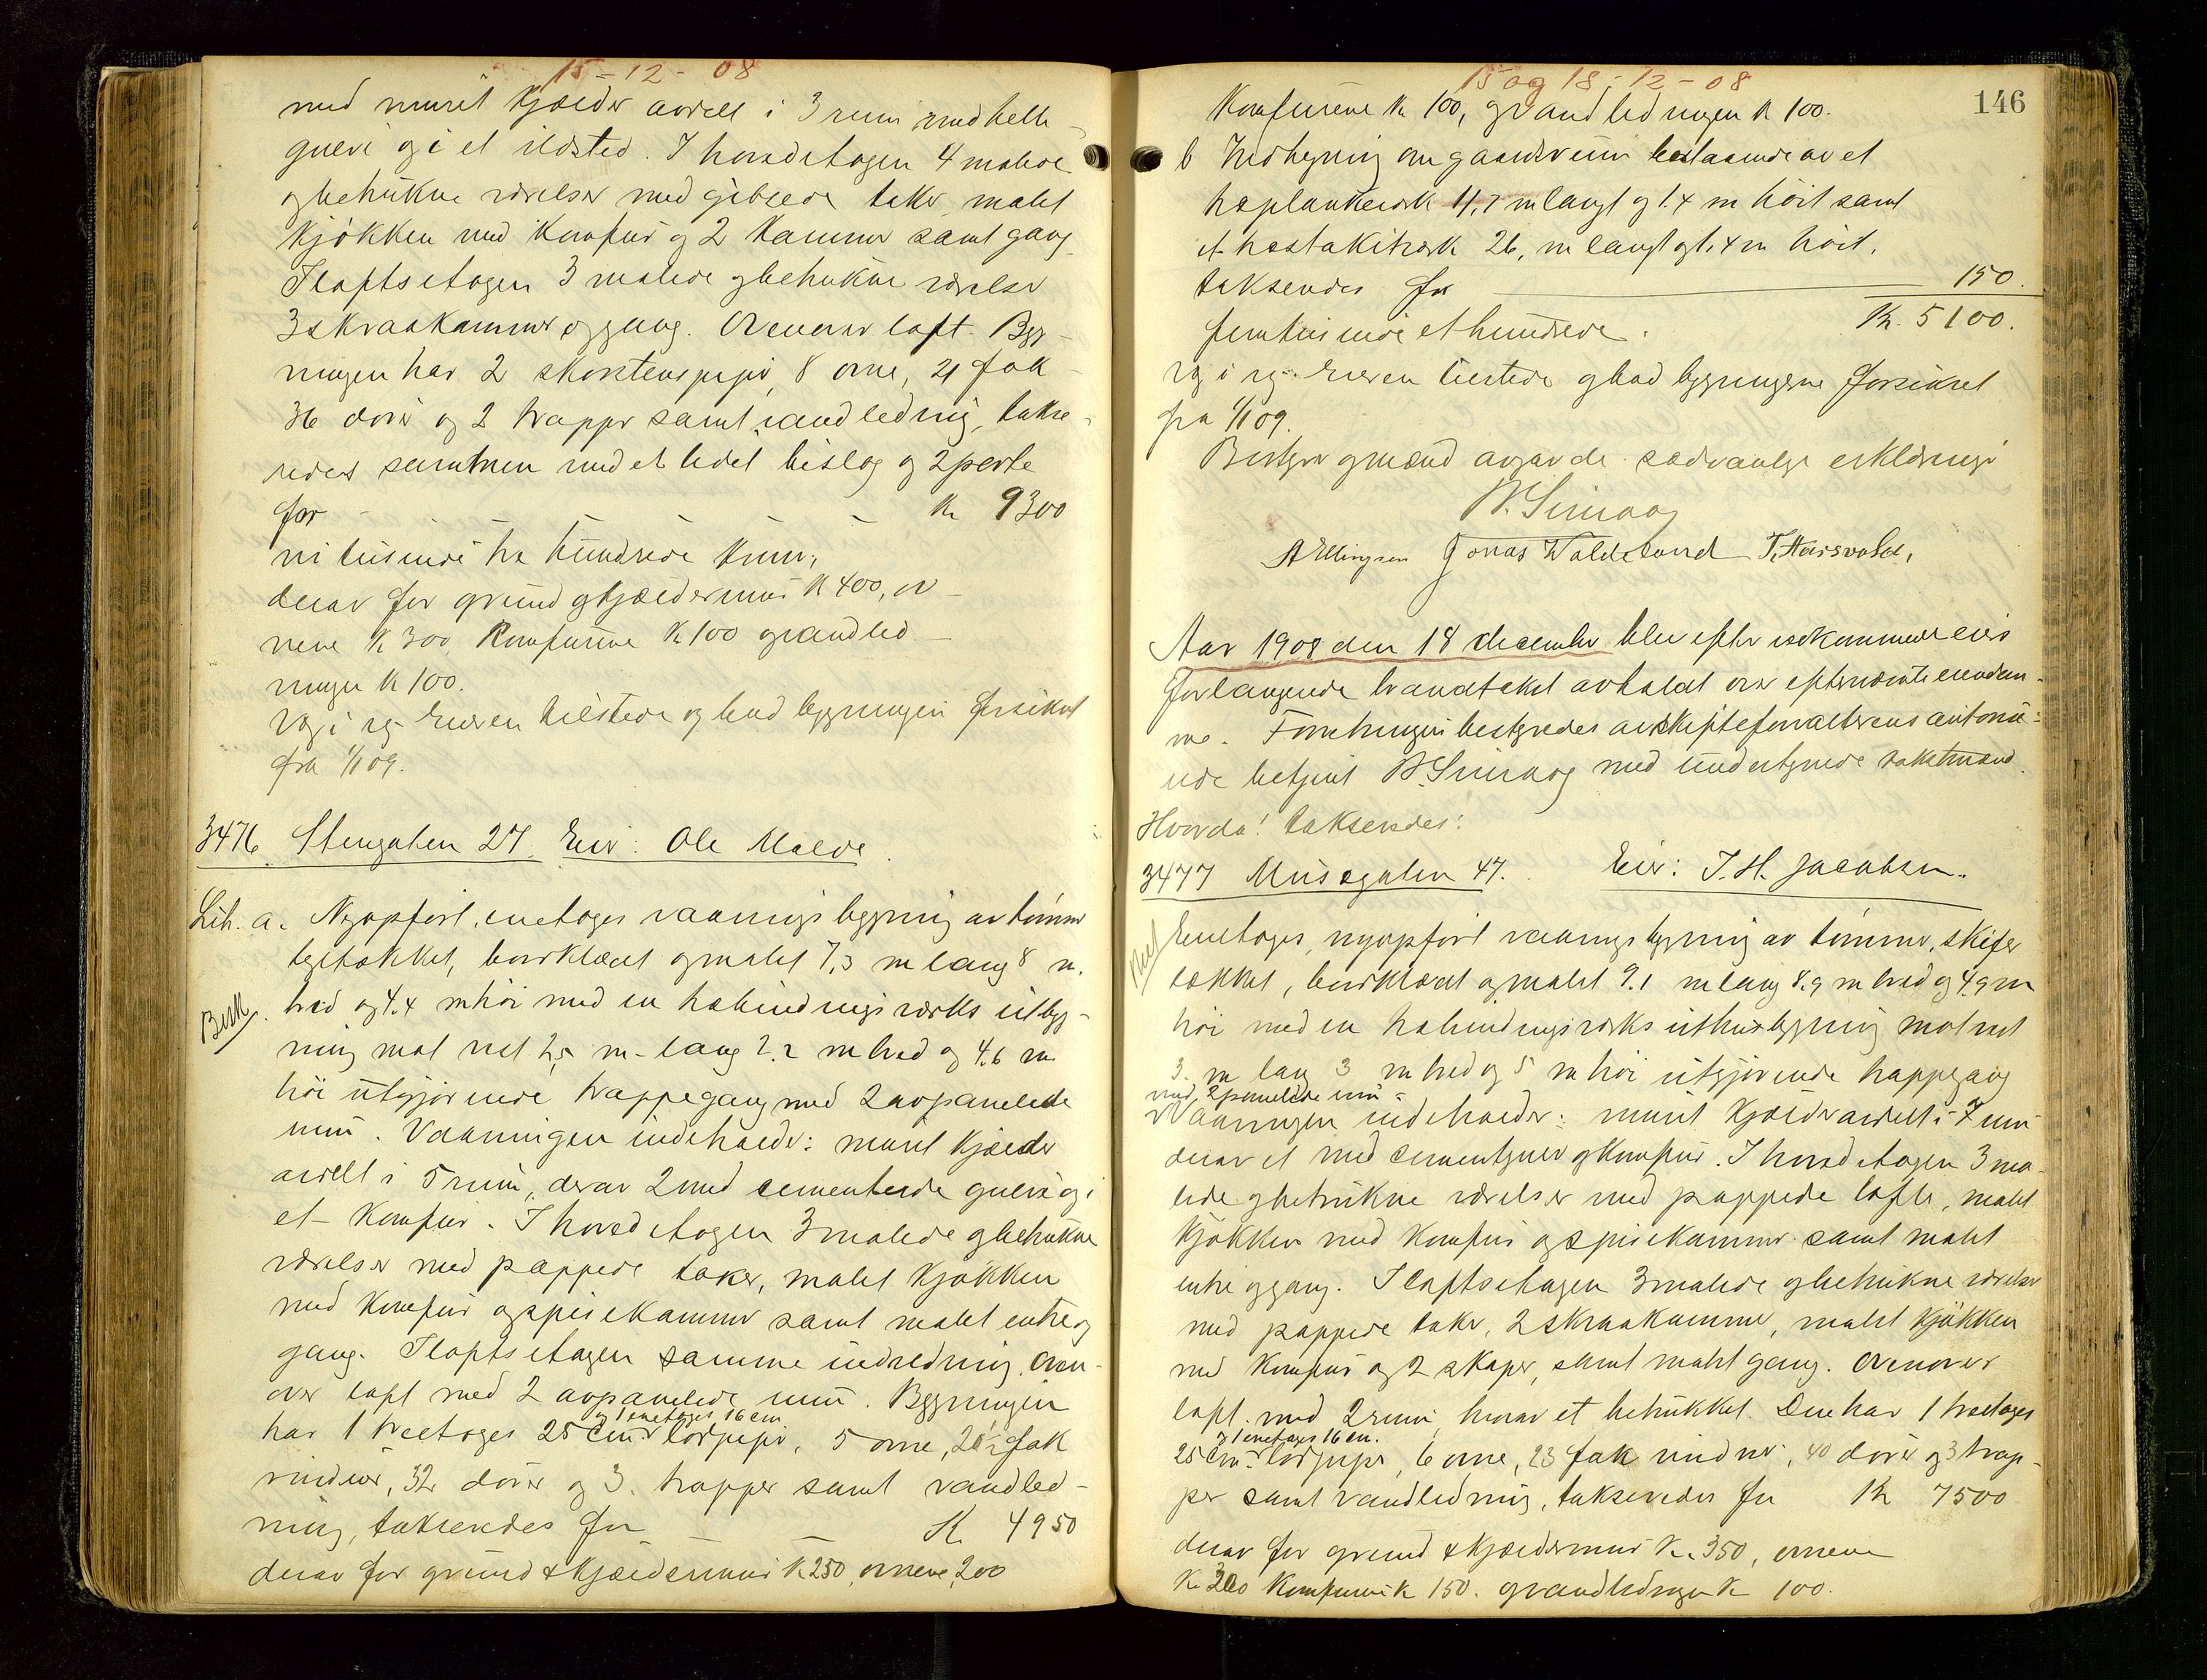 15-12-08
med muret kjælder avdelt i 3 rum med helle-
gulve og i et ildsted. I hovedetagen 4 malede
og betrukne værelser med gibsede taker, malet
kjøkken med komfur og 2 kammer samt gang.
I loftsetagen 3 malede og betrukne værelser
3 skraakammer og gang. Ovenover loft. Byg-
ningen har 2 skorstenspiper, 8 ovne, 21 fak
36 dører og 2 trapper samt vandledning, takse-
redes sammen med et lidet bislag og 2 porte
for - - - - Kr 9300
ni tusinde tre hundrede kroner,
derav for grund og kjældermur K 400, ov-
nene K 300, Komfurene K 100 og vandled-
ningen K 100.
Vei i reg. Eieren tilstede og bad bygningen forsikret
fra 1/1 09.
3476. Stengaten 27. Eier: Ole Malde.
Lit. a. Nyopført, enetages vaaningsbygning av tømmer
tegltækket, bordklædt og malet 7,3 m lang 8 m.
bred og 4.4 m høi med en utbindingsverks utbyg-
Besk.
ning mot vest 2,5 m lang 2.2 m bred og 4.6 m
høi utgjørende trappegang med 2 avpanelede
rum. Vaaningen indeholder: muret kjælder
avdelt i 5 rum, derav 2 med cementerede gulve og i
et Komfur. I hovedetagen 3 malede og betrukne
værelser med pappede taker, malet kjøkken
med komfur og spisekammer samt malet entre og
gang. I loftsetagen samme indredning. Oven-
over loft med 2 avpanelede rum. Bygningen
og 1 enetages 16 cm
har 1 treetages 25 cm's lodpipe, 5 ovne, 20½ fak
vinduer, 32 dører og 3 trapper samt vandled-
ning, takseredes for - - K. 4950
derav for grund & kjældermur K 250, ovnene 200
15 og 18-12-08
146
Komfurene Kr 100, og vandledningen K 100.
b Indhegning om gaardsrum bestaaende av et
træplankeverk 11,7 m langt og 1.4 m høit samt
et træstakitverk 26, m langt og 1,4 m høit,
takseredes for 150.
femtusinde et hundrede. Kr. 5100.
Vei i reg. Eieren tilstede og bad bygningerne forsikret
fra 1/1 09.
Bestyrer og mænd avgav de sædvanlige erklæringer
A Ellingsen Jonas Waldeland T. Aarsvold,
Aar 1908 den 18 december blev efter vedkommende eiers
forlangende brandtakst avholdt over efternævnte eiendom-
me. Forretningen bestyredes av skifteforvalterens autorise-
rede betjent med undertegnede takstmænd.
Hvorda! takseredes:
3477 Musegaten 47. Eier: T. H. Jacobsen.
Enetages, nyopført vaaningsbygning av tømmer, skifer
tækket, bordklædt og malet 9.1 m lang 8.9 m bred og 4.9 m
høi med en utbindingsverks utbygning mot vest
3. m lang 3 m bred og 5 m høi utgjørende trappegang
med 2 panelede rum
Vaaningen indeholder: muret kjælder avdelt i 7 rum
derav et med cementgulv og komfur. I hovedetagen 3 ma-
lede og betrukne værelser med pappede lofte, malet
kjøkken med komfur og spisekammer samt malet
entre og gang. I loftsetagen 3 malede og betrukne værelser
med pappede taker, 2 skraakammer, malet kjøkken
med komfur og 2 skaper, samt malet gang. Ovenover
loft med 2 rum, hvorav et betrukket. Den har 1 treetages
og 1 enetages 16 cm.
25 cm's lodpipe, 6 ovne, 23 fak vinduer, 40 dører og 3 trap-
per samt vandledning, takseredes for Kr 7500
derav for grund & kjældermur K. 350, ovnene
K. 300 Komfurene K 150. og vandledningen K 100.